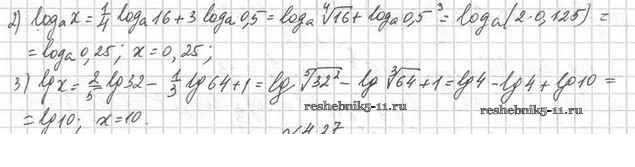 2) logₐ x = 1/4 logₐ 16 + 3 logₐ 0,5 = logₐ ⁴√16 + logₐ 0,5³ = logₐ (2·0,125) =
= logₐ 0,25; x = 0,25;
3) lg x = 2/5 lg 32 - 1/3 lg 64 + 1 = lg ⁵√32² - lg ³√64 + 1 = lg 4 - lg 4 + lg 10 =
= lg 10; x = 10.
reshebnik5-11.ru
reshebnik5-11.ru